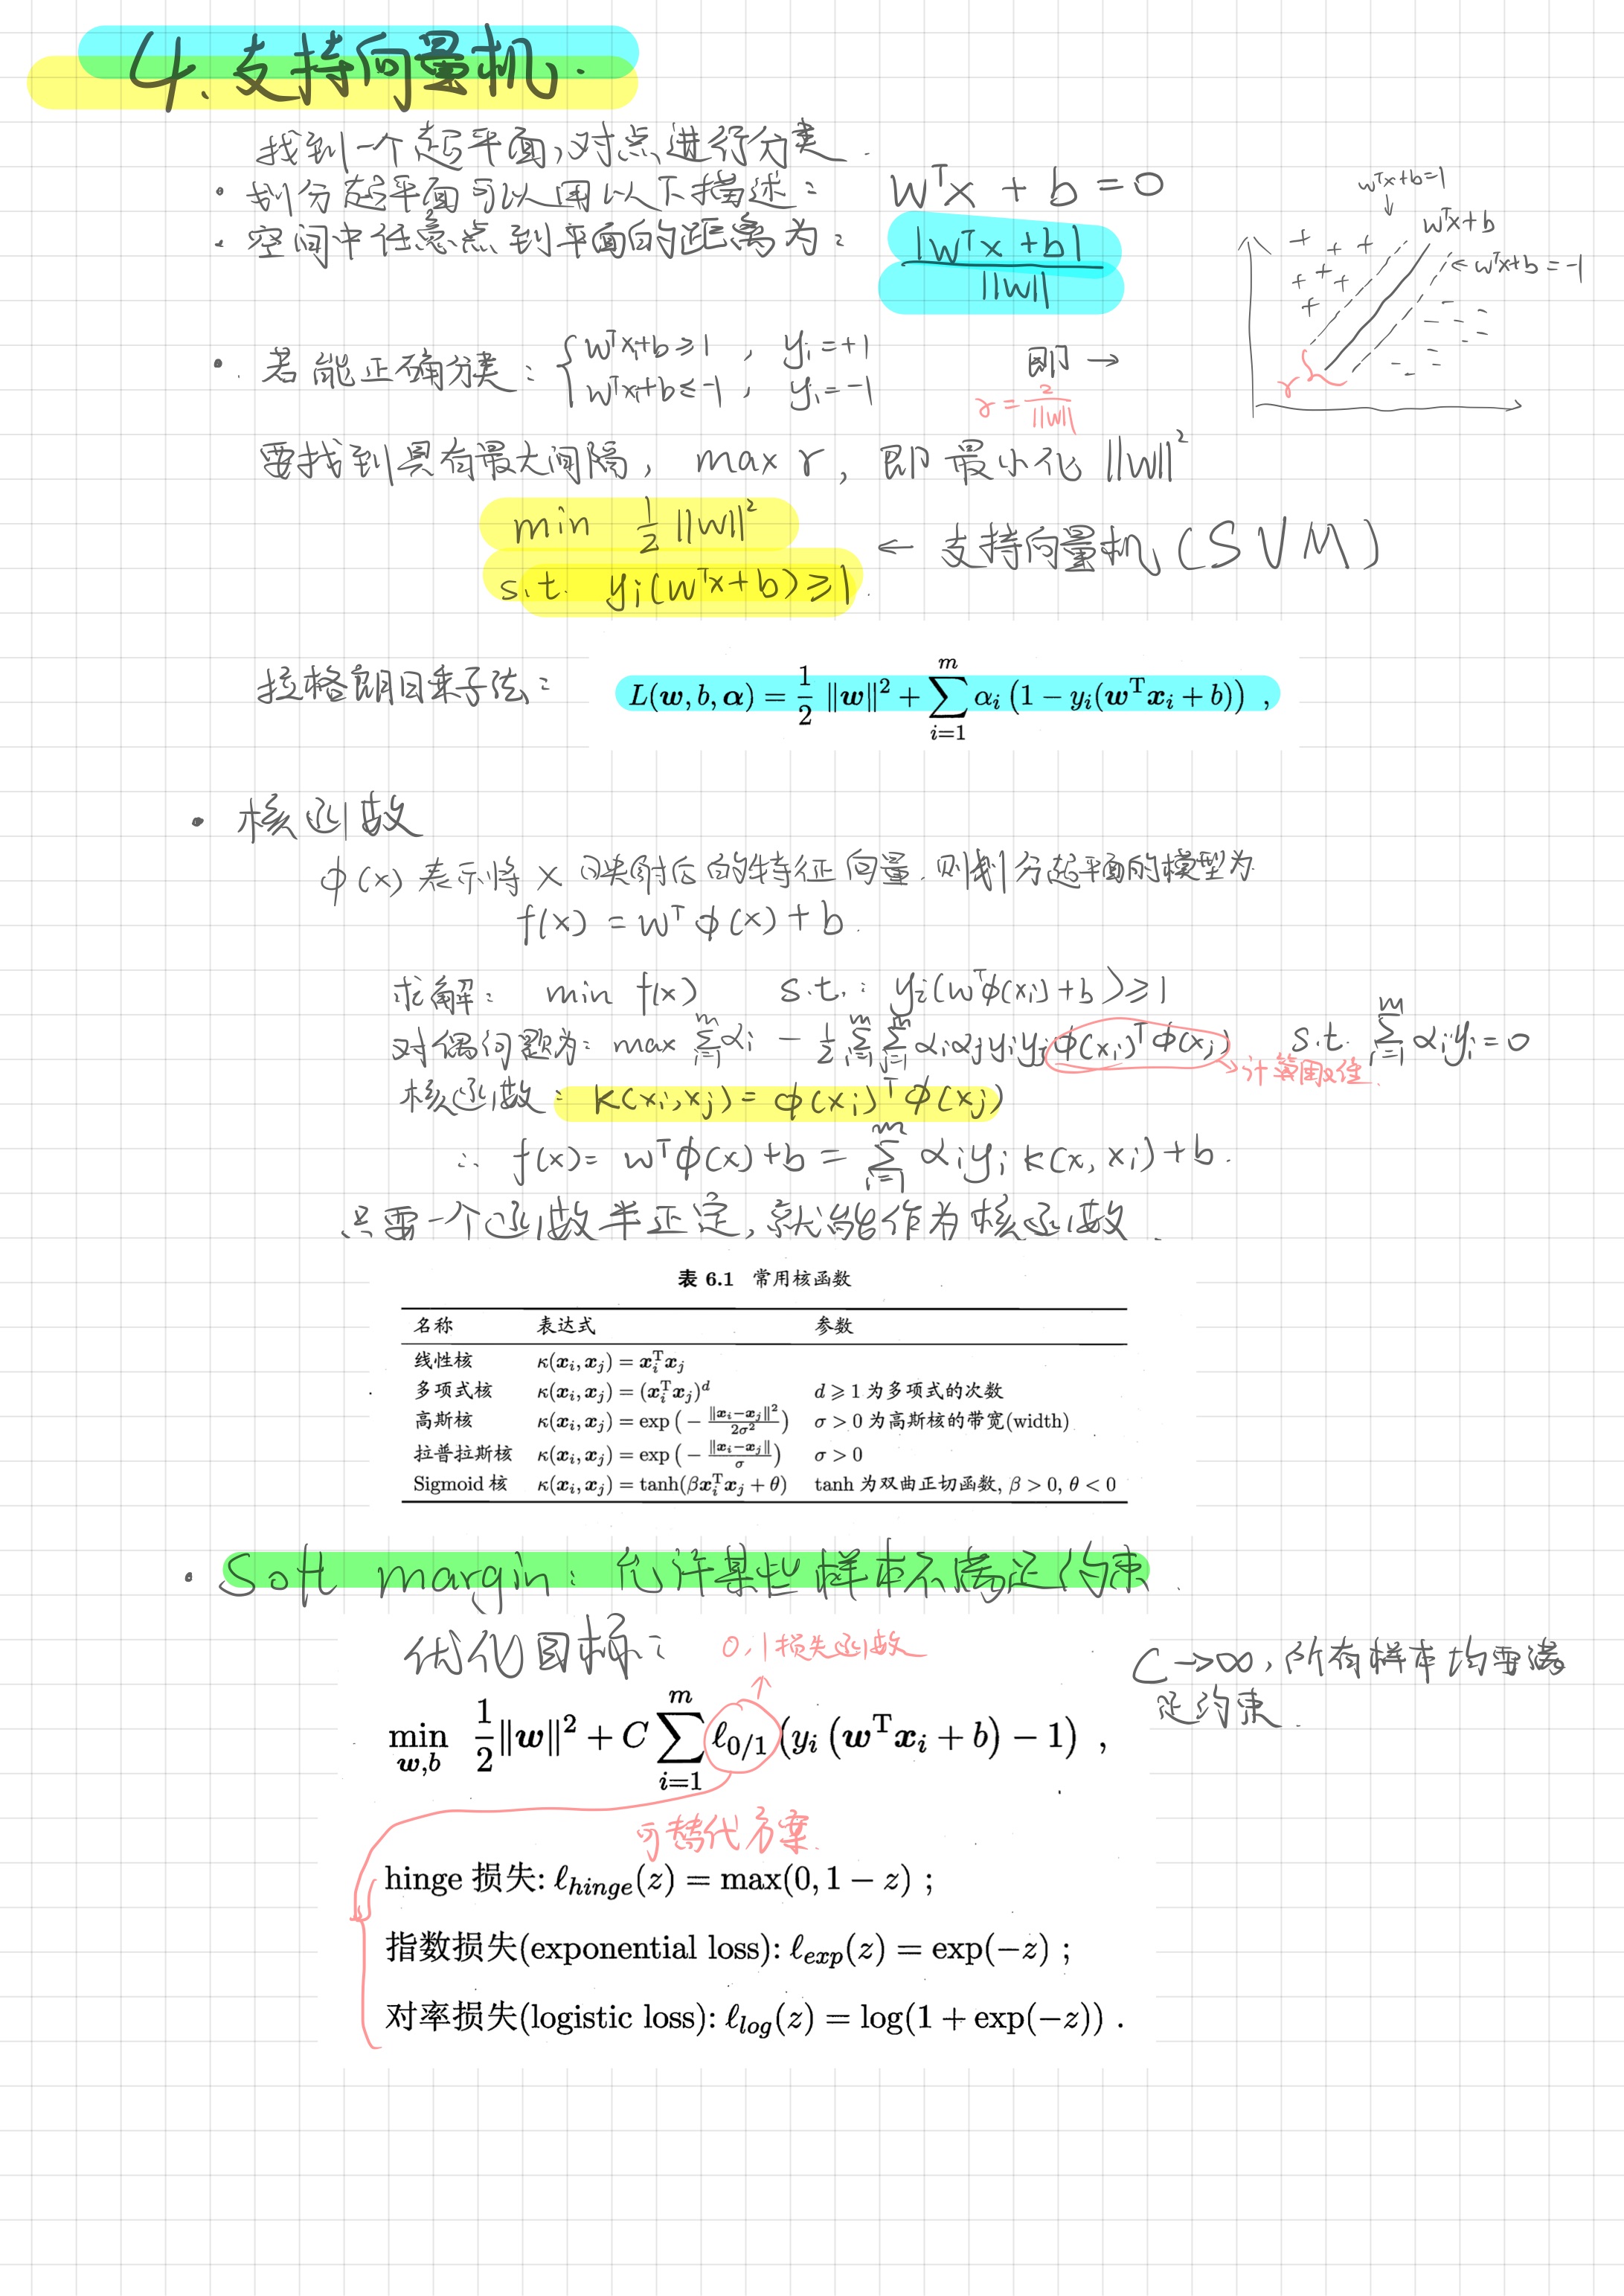 4. 支持向量机.
找到一个超平面,对点进行分类.
· 划分超平面可以用以下描述: wᵀx + b = 0
· 空间中任意点到平面的距离为: |wᵀx + b| / ||w||
wᵀx+b=1
wᵀx+b
← wᵀx+b = -1
γ
· 若能正确分类: { wᵀxᵢ+b ≥ 1 , yᵢ = +1 即 →
wᵀxᵢ+b ≤ -1 , yᵢ = -1
γ = 2/||w||
要找到具有最大间隔, max γ, 即最小化 ||w||²
min ½ ||w||²
s.t. yᵢ(wᵀx + b) ≥ 1. ← 支持向量机 (SVM)
拉格朗日乘子法: L(w, b, α) = 1/2 ‖w‖² + ∑ᵢ₌₁ᵐ αᵢ (1 − yᵢ(wᵀxᵢ + b)) ,
· 核函数
φ(x) 表示将 x 映射后的特征向量. 则划分超平面的模型为
f(x) = wᵀ φ(x) + b.
求解: min f(x) s.t.: yᵢ(wᵀφ(xᵢ) + b) ≥ 1
对偶问题为: max ∑ᵢ₌₁ᵐ αᵢ - ½ ∑ᵢ₌₁ᵐ ∑ⱼ₌₁ᵐ αᵢαⱼyᵢyⱼφ(xᵢ)ᵀφ(xⱼ) s.t. ∑ᵢ₌₁ᵐ αᵢyᵢ = 0
→ 计算困难.
核函数: k(xᵢ, xⱼ) = φ(xᵢ)ᵀ φ(xⱼ)
∴ f(x) = wᵀφ(x) + b = ∑ᵢ₌₁ᵐ αᵢyᵢ k(x, xᵢ) + b.
只要一个函数半正定, 就能作为核函数.
表 6.1 常用核函数
名称 表达式 参数
线性核 κ(xᵢ, xⱼ) = xᵢᵀxⱼ
多项式核 κ(xᵢ, xⱼ) = (xᵢᵀxⱼ)ᵈ d ⩾ 1 为多项式的次数
高斯核 κ(xᵢ, xⱼ) = exp (− ‖xᵢ−xⱼ‖²/2σ²) σ > 0 为高斯核的带宽(width)
拉普拉斯核 κ(xᵢ, xⱼ) = exp (− ‖xᵢ−xⱼ‖/σ) σ > 0
Sigmoid 核 κ(xᵢ, xⱼ) = tanh(βxᵢᵀxⱼ + θ) tanh 为双曲正切函数, β > 0, θ < 0
· Soft margin: 允许某些样本不满足约束.
优化目标: 0,1损失函数
C→∞, 所有样本均要满
足约束.
min w,b 1/2 ‖w‖² + C ∑ᵢ₌₁ᵐ ℓ₀/₁ (yᵢ (wᵀxᵢ + b) − 1) ,
可替代方案.
hinge 损失: ℓhinge(z) = max(0, 1 − z) ;
指数损失(exponential loss): ℓexp(z) = exp(−z) ;
对率损失(logistic loss): ℓlog(z) = log(1 + exp(−z)) .